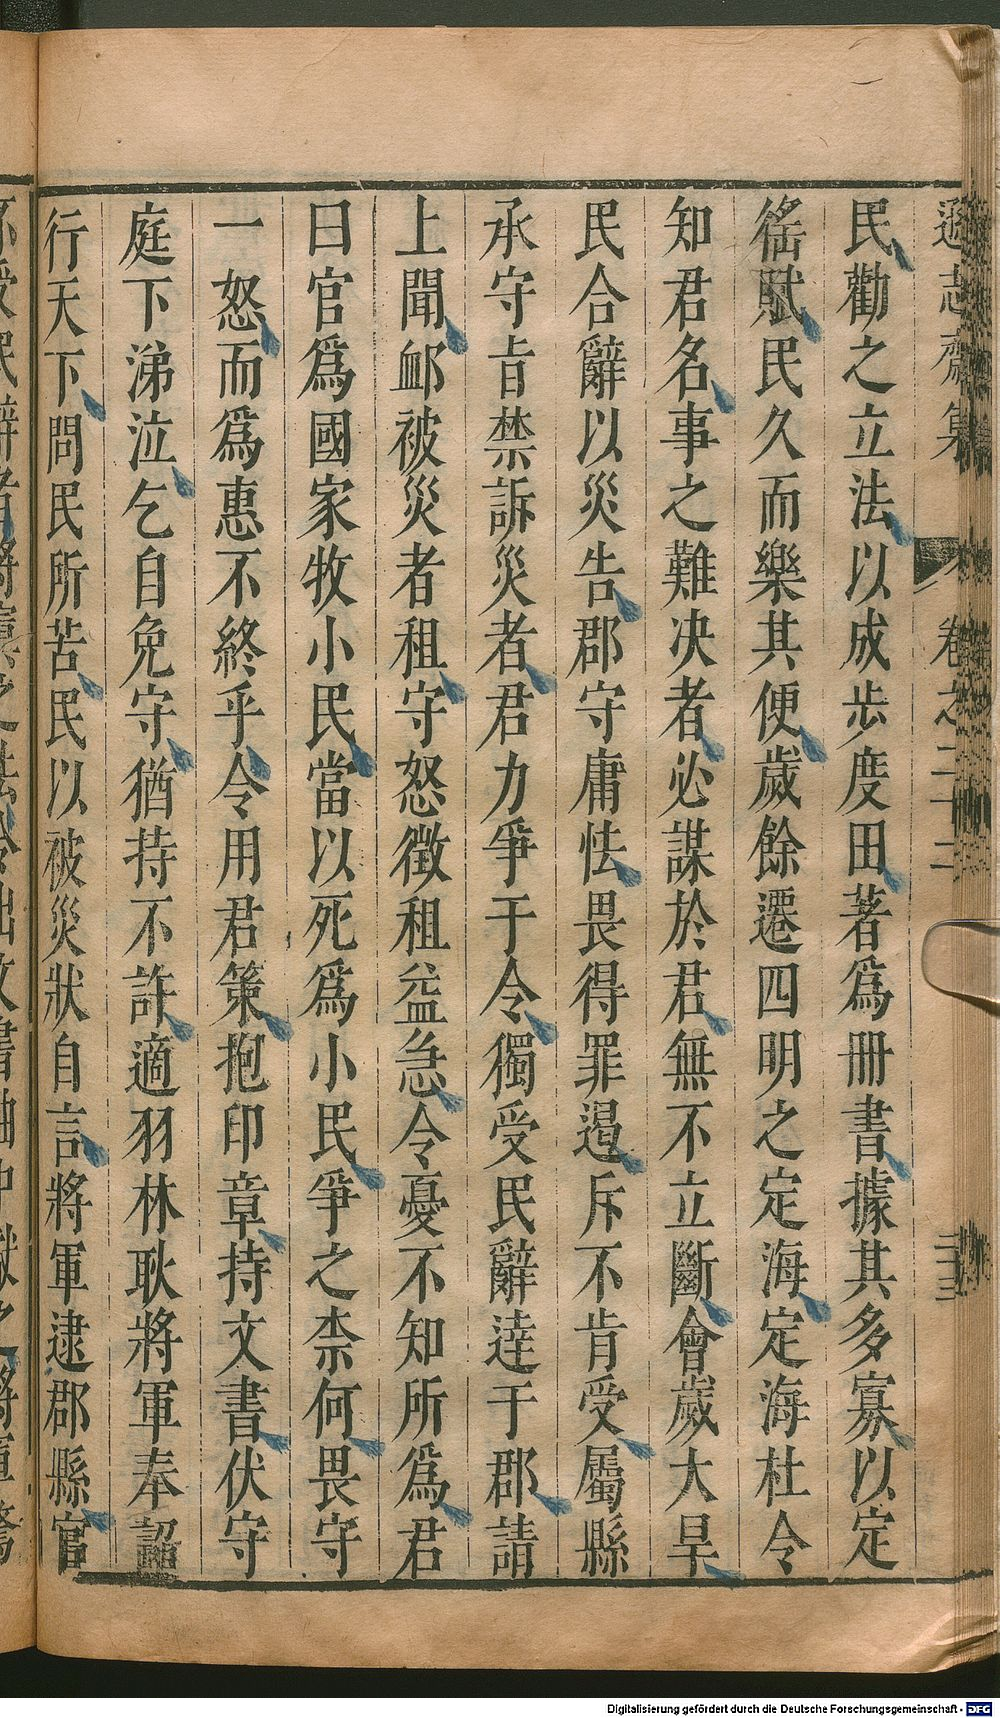 遜志齋集 卷之二十二
民勸之立法以成步度田著爲冊書據其多寡以定
徭賦民久而樂其便歲餘遷四明之定海定海杜令
知君名事之難决者必謀於君無不立斷會歲大旱
民合辭以災告郡守庸怯畏得罪遏斥不肯受屬縣
承守㫖禁訴災者君力爭于令獨受民辭逹于郡請
上聞䘏被災者租守怒徵租益急令憂不知所爲君
曰官爲國家牧小民當以死爲小民爭之柰何畏守
一怒而爲惠不終乎令用君策抱印章持文書伏守
庭下涕泣乞自免守猶持不許適羽林耿將軍奉詔
行天下問民所苦民以被災狀自言將軍逮郡縣官
Digitalisierung gefördert durch die Deutsche Forschungsgemeinschaft - DFG